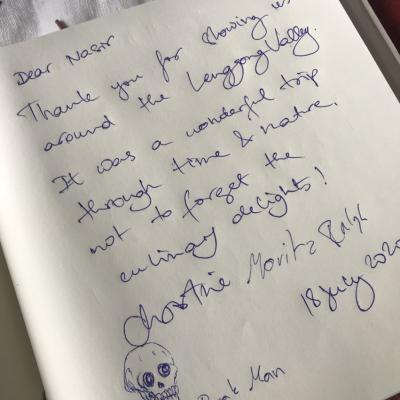 Dear Nasir
Thank you for showing us
around the Lenggong Valley.
It was a wonderful trip
through time & nature,
not to forget the
culinary delights!
Christine Moritz Ralph
18 July 2020
Perak Man